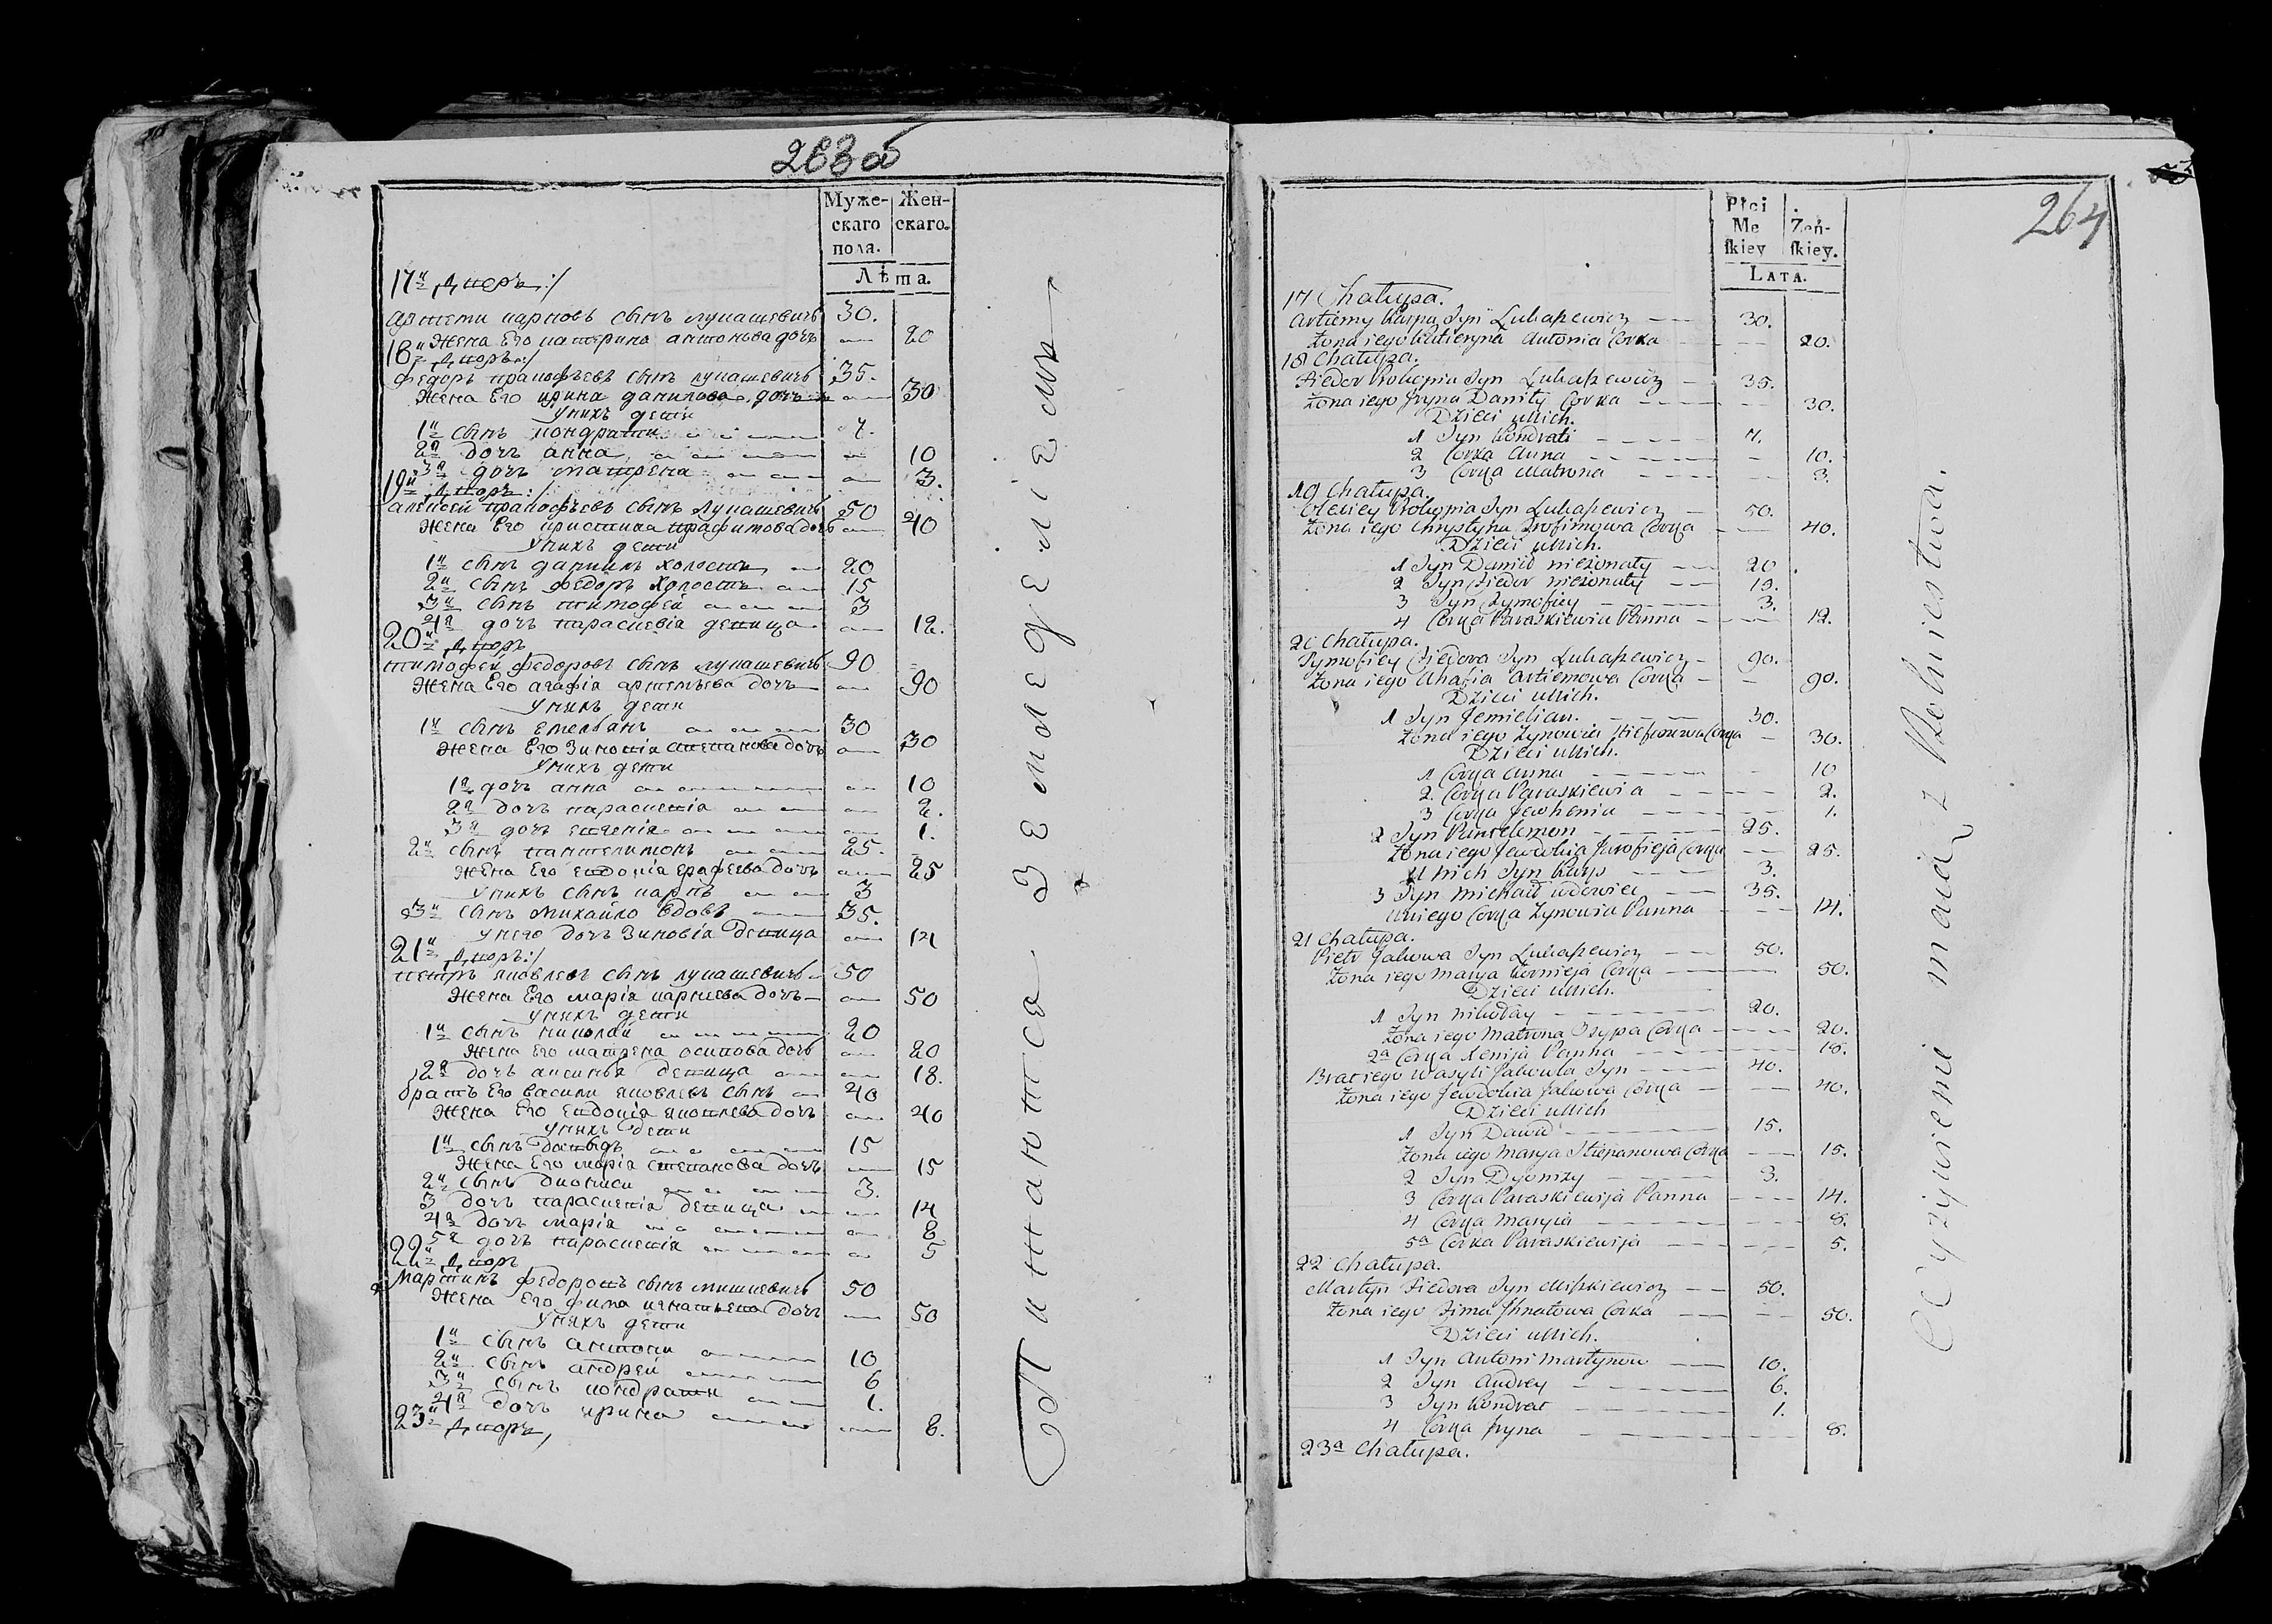 263 об
Муже-
скаго
пола.
Жен-
скаго.
Лѣта.
17й Дворъ:/
Артеми карповъ сынъ лукашевичъ 30.
Жена Его катерина антонова дочъ 20
18й Дворъ:/
Федоръ пракофьевъ сынъ лукашевичъ 35.
Жена Его ирина данилова дочъ 30
Унихъ дети
1й сынъ кондрати 7.
2я дочъ анна 10
3я дочъ матрена 3.
19й Дворъ:/
алексей пракофьевъ сынъ лукашевичъ 50
Жена Его кристина трафимова дочъ 40
Унихъ дети
1й сынъ даниилъ холостъ 20
2й сынъ федоръ холостъ 15
3й сынъ тимофей 3
4я дочъ параскевія девица 12.
20й Дворъ
тимофей федоровъ сынъ лукашевичъ 90
Жена Его агафія артемьева дочъ 90
Унихъ дети
1й сынъ Емельянъ 30
Жена Его Зиновія степанова дочъ 30
Унихъ дети
1я дочъ анна 10
2я дочъ параскевія 2.
3я дочъ евгенія 1.
2й сынъ пантелимонъ 25.
Жена Его евдокія ерафеева дочъ 25
Унихъ сынъ карпъ 3
3й сынъ михайло вдовъ 35.
Унего дочъ Зиновія девица 14
21й Дворъ:/
петръ яковлевъ сынъ лукашевичъ 50
Жена Его марія карнеева дочъ 50
Унихъ дети
1й сынъ николай 20
Жена Его матрена осипова дочъ 20
2я дочъ аксинья девица 18.
братъ Его васили яковлевъ сынъ 40
Жена Его евдокія яковлева дочъ 40
Унихъ дети
1й сынъ давыдъ 15
Жена Его марія степанова дочъ 15
2й сынъ диониси 3.
3 дочъ параскевія девица 14
4я дочъ марія 8
5я дочъ параскевія 5
22й Дворъ
Мартинъ федоровъ сынъ мишкевичъ 50
Жена Его фима игнатьева дочъ 50
Унихъ дети
1й сынъ антони 10
2й сынъ андрей 6
3й сынъ кондрати 1.
4я дочъ ирина 8.
23й Дворъ,
Питаются Земледелiемъ
264
Płci
Mę
ſkiey
Żeń-
ſkiey.
LATA.
17 Chałupa.
Artiemy Karpa Syn Łukaszewicz 30.
Żona iego Katieryna Antonia Corka 20.
18 Chałupa.
Fiedor Prokopia Syn Łukaszewicz 35.
Żona iego Jryna Daniły Corka 30.
Dzieci u nich.
1 Syn Kondrati 7.
2 Corka Anna 10.
3 Corka Matrona 3.
19 Chałupa.
Olexiey Prokopia Syn Łukaszewicz 50.
Żona iego Chrystyna Trofimowa Corka 40.
Dzieci u nich.
1 Syn Danilo nieżonaty 20.
2 Syn Fiedor nieżonaty 15.
3 Syn Tymofiey 3.
4 Corka Paraskiewia Panna 12.
20 Chałupa.
Tymofiey Fiedora Syn Łukaszewicz 90.
Żona iego Ahafia Artiemowa Corka 90.
Dzieci u nich.
1 Syn Jemielian. 30.
Żona iego Zynowia Stiefanowa Corka 30.
Dzieci u nich.
1 Corka Anna 10
2. Corka Paraskiewia 2.
3 Corka Jewhenia 1.
2 Syn Pantelemon 25.
Żona iego Jewdokia Jarofieja Corka 25.
U nich Syn Karp 3.
3 Syn Michaił udowiec 35.
U niego Corka Zynowia Panna 14.
21 Chałupa.
Pietr Jakowa Syn Łukaszewicz 50.
Żona iego Marya Kornieja Corka 50.
Dzieci u nich.
1 Syn Nikołay 20.
Żona iego Matrona Osypa Corka 20.
2a Corka Xenija Panna 18.
Brat iego Wasyli Jakowla Syn 40.
Żona iego Jewdokia Jakowa Corka 40.
Dzieci u nich
1 Syn Dawid 15.
Żona iego Marya Stiepanowa Corka 15.
2 Syn Dyonizy 3.
3 Corka Paraskiewija Panna 14.
4 Corka Maryia 8.
5a Corka Paraskiewija 5.
22 Chałupa.
Martyn Fiedora Syn Miszkiewicz 50.
Żona iego Fima Jhnatowa Corka 50.
Dzieci u nich.
1 Syn Antoni Martynow 10.
2 Syn Andrey 6.
3 Syn Kondrat 1.
4 Corka Jryna 8.
23a Chałupa.
Wyżywienie maią z Rolnictwa.